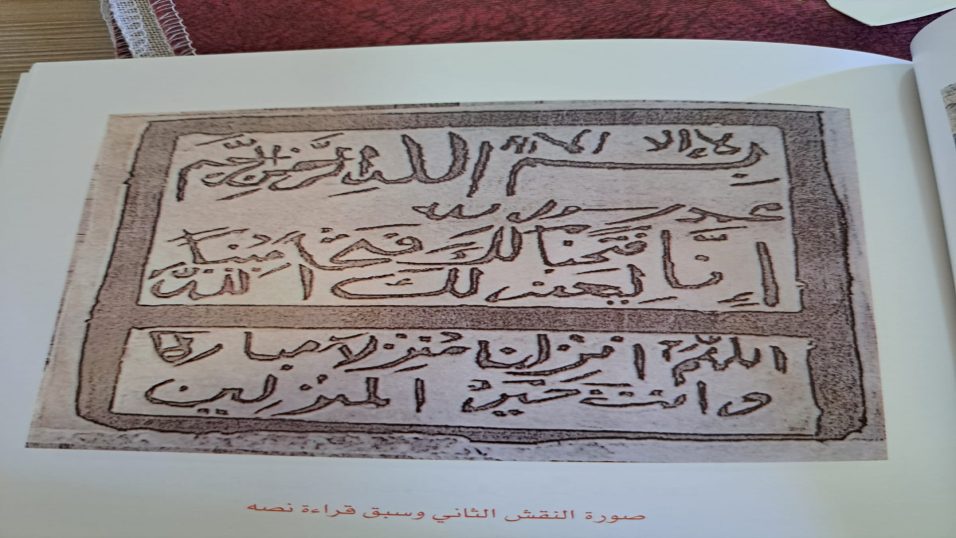 لا إله إلا الله
بسم الله الرحمن الرحيم
محمد رسول الله
إنا فتحنا لك فتحا مبينا
ليغفر لك الله
اللهم انزلنا منزلا مباركا
وانت خير المنزلين
صورة النقش الثاني وسبق قراءة نصه